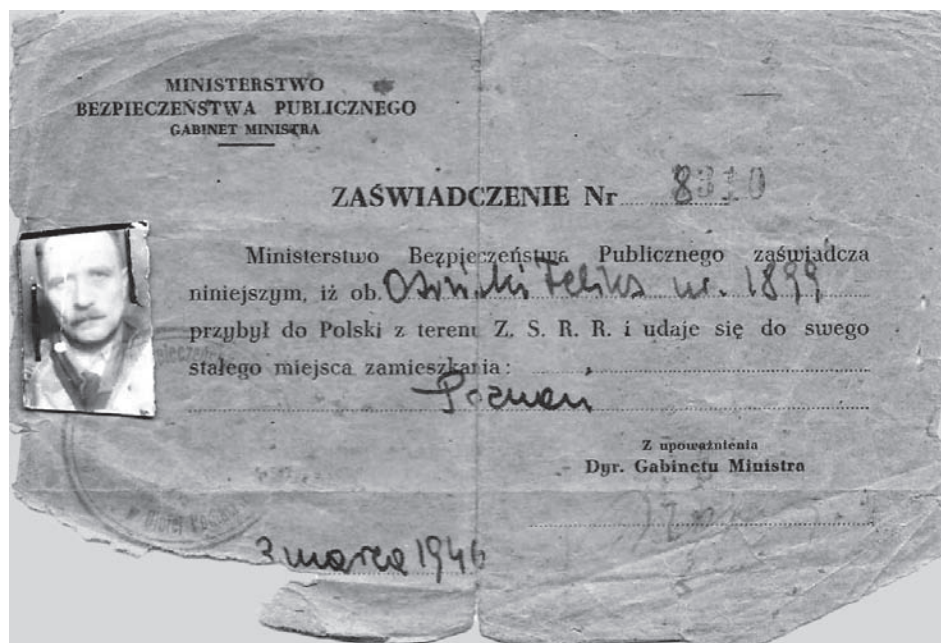 MINISTERSTWO
BEZPIECZEŃSTWA PUBLICZNEGO
GABINET MINISTRA
ZAŚWIADCZENIE Nr 8310
Ministerstwo Bezpieczeństwa Publicznego zaświadcza
niniejszym, iż ob. Osiński Feliks ur. 1899
przybył do Polski z terenu Z. S. R. R. i udaje się do swego
stałego miejsca zamieszkania:
Poznań
Z upoważnienia
Dyr. Gabinetu Ministra
3 marca 1946